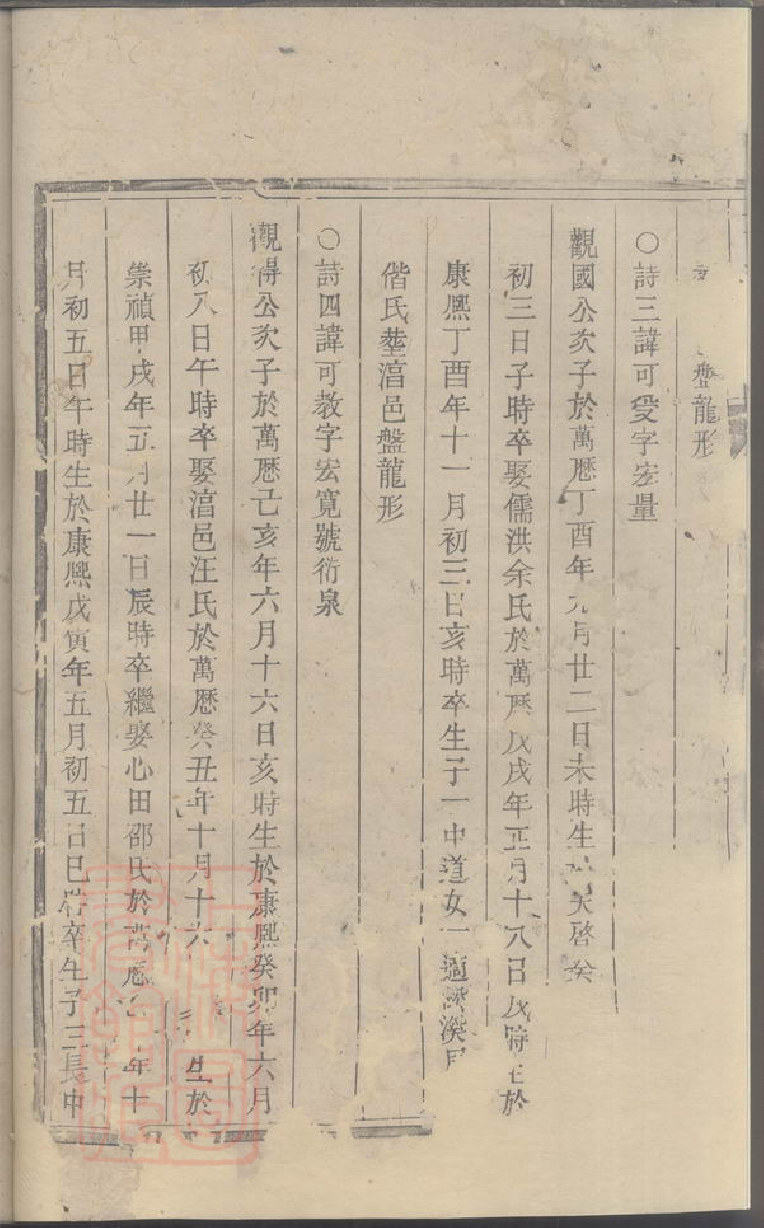 盤龍形
○詩三諱可受字宏量
觀國公次子於萬歷丁酉年九月廿二日未時生 天啓癸
初三日子時卒娶儒洪余氏於萬歷戊戌年正月十八日戌時生於
康熙丁酉年十一月初三日亥時卒生子一中道女一適
偕氏塟湻邑盤龍形
○詩四諱可教字宏寬號衍泉
觀得公次子於萬歷己亥年六月十六日亥時生於康熙癸卯年六月
初八日午時卒娶湻邑汪氏於萬歷癸丑年十月十六 生於
崇禎甲戌年五月廿一日辰時卒繼娶心田邵氏於萬歷 年十
月初五日午時生於康熙戊寅年五月初五日巳時卒生子三長中